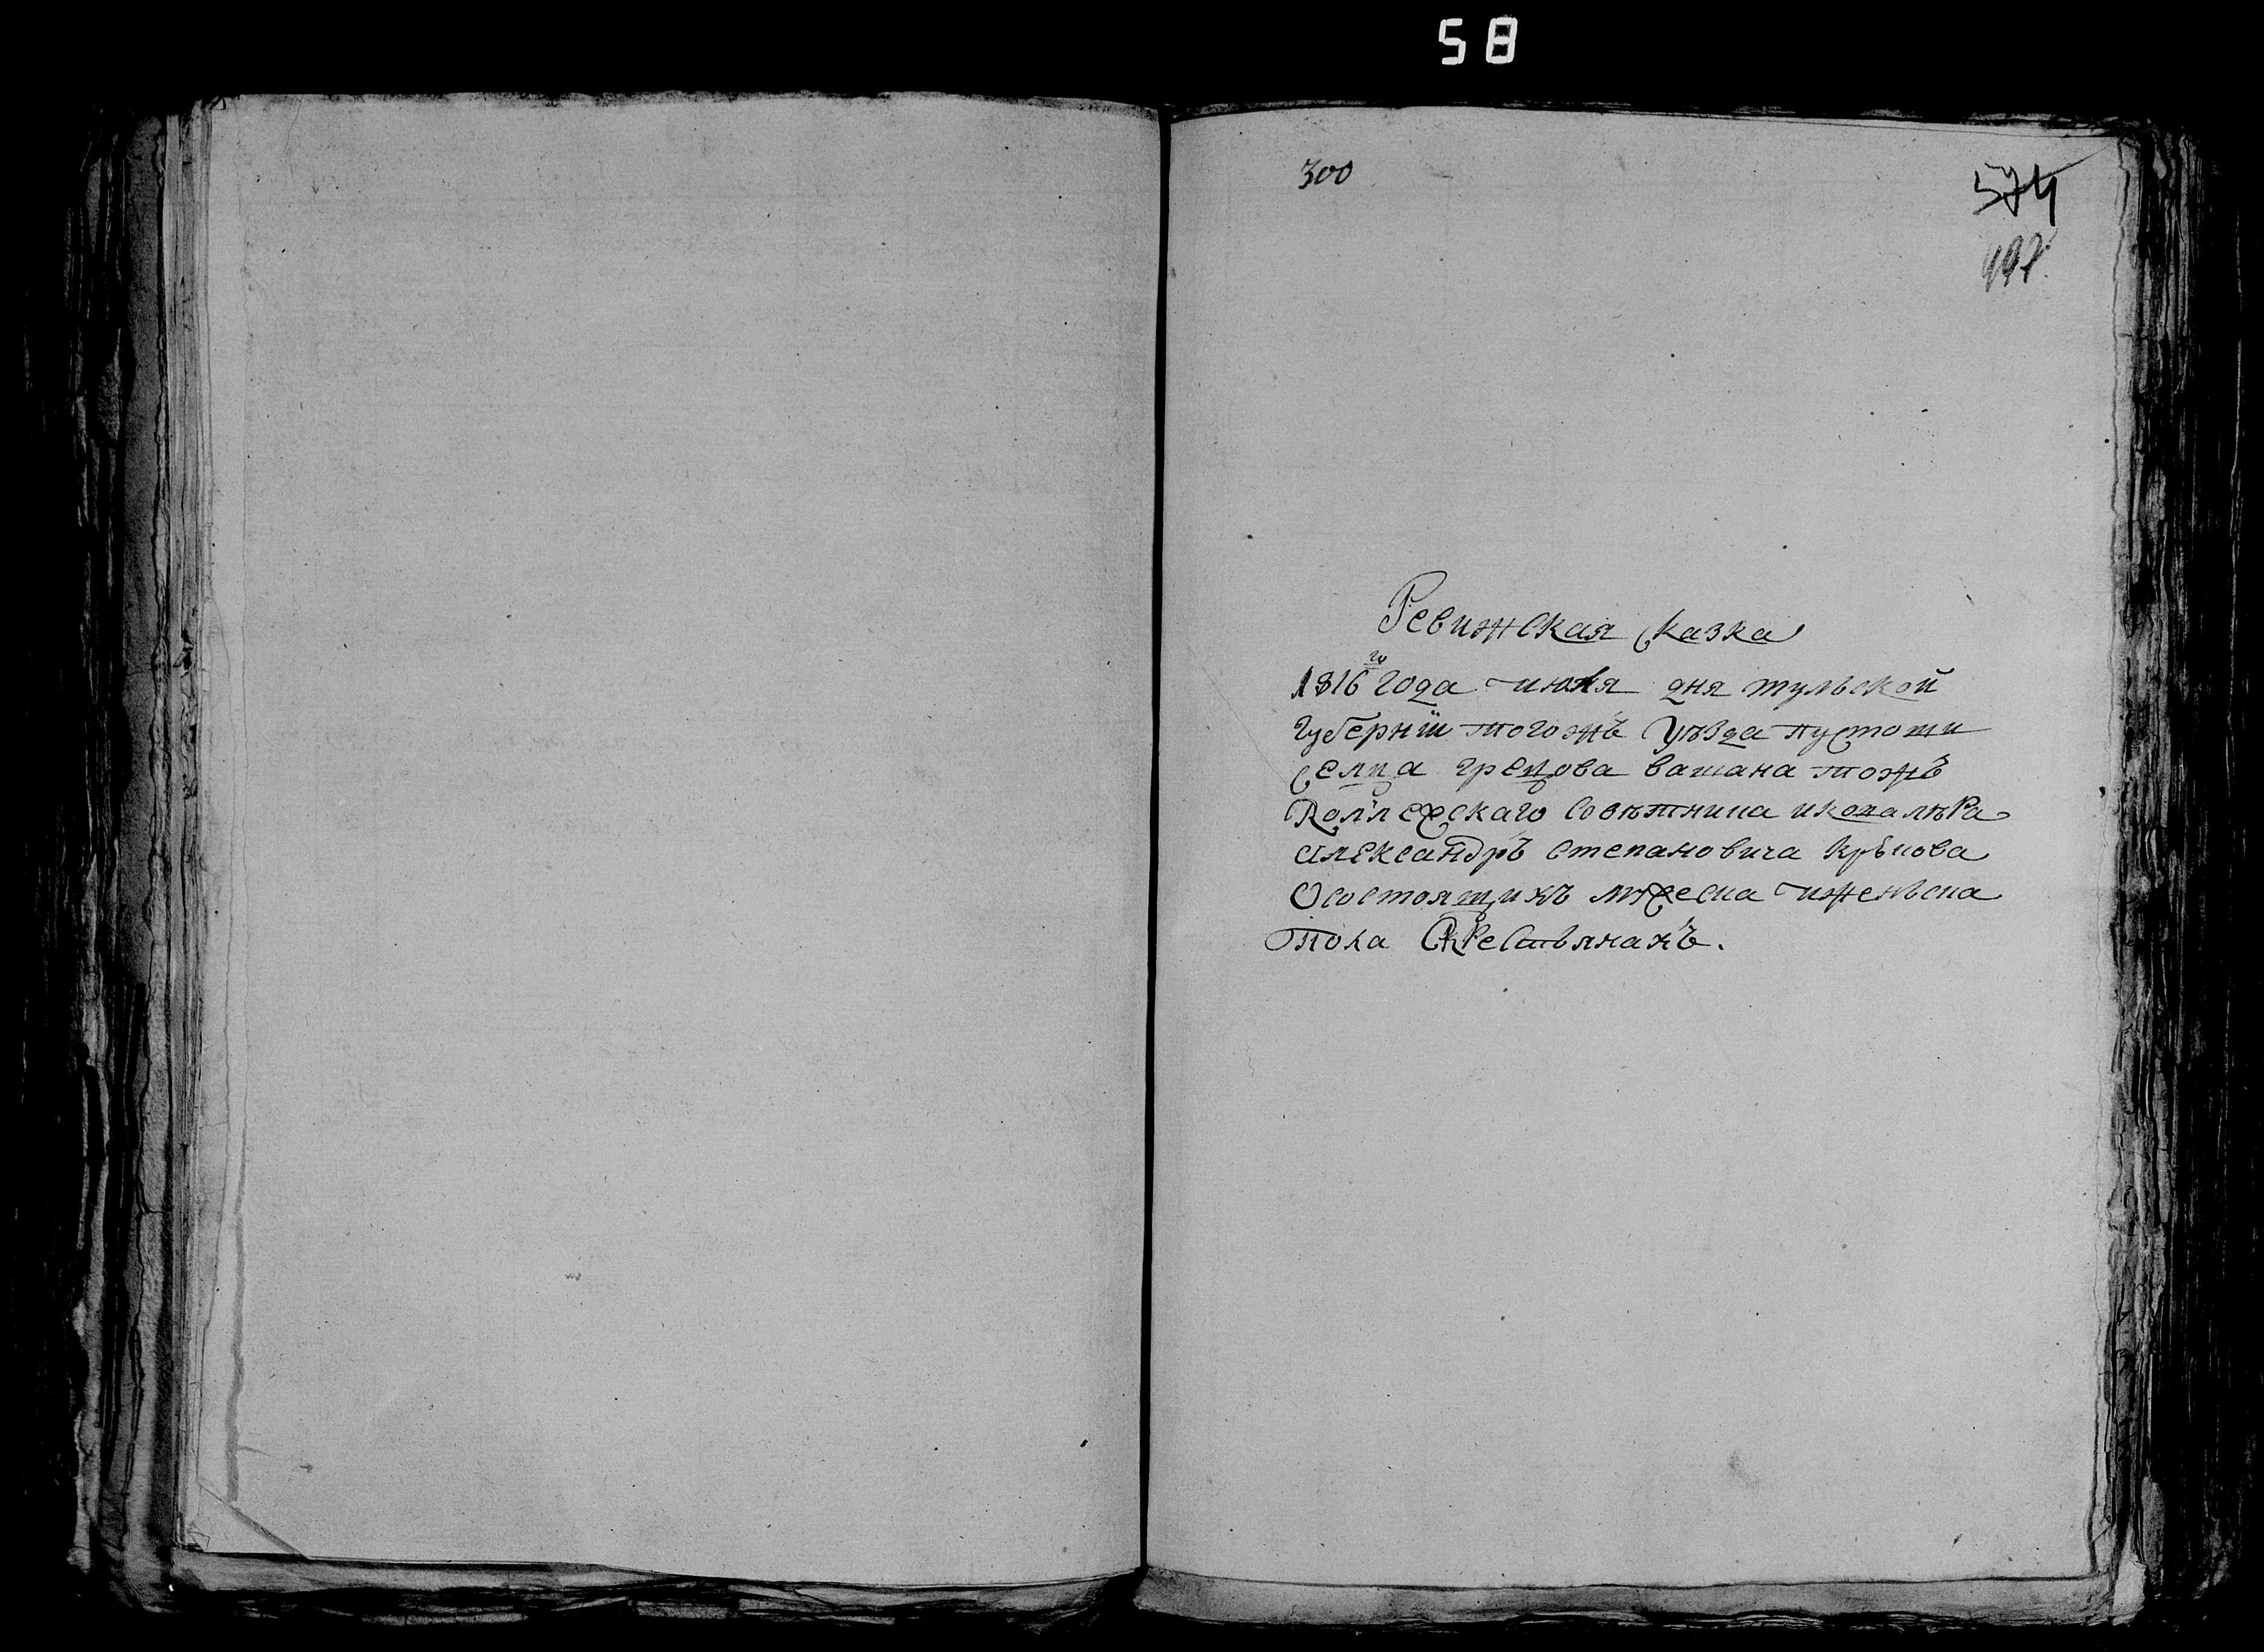 58
300
574
497.
Ревижская Сказка
1816го года июля дня тульской
губернїи тогожъ уѣзда пустоши
Селца грецова вашана тожъ
Коллежскаго Советника и ковалѣра
Александръ Степановича Крюкова
Осостоящихъ мужеска иженьска
Пола Крестьянахъ.